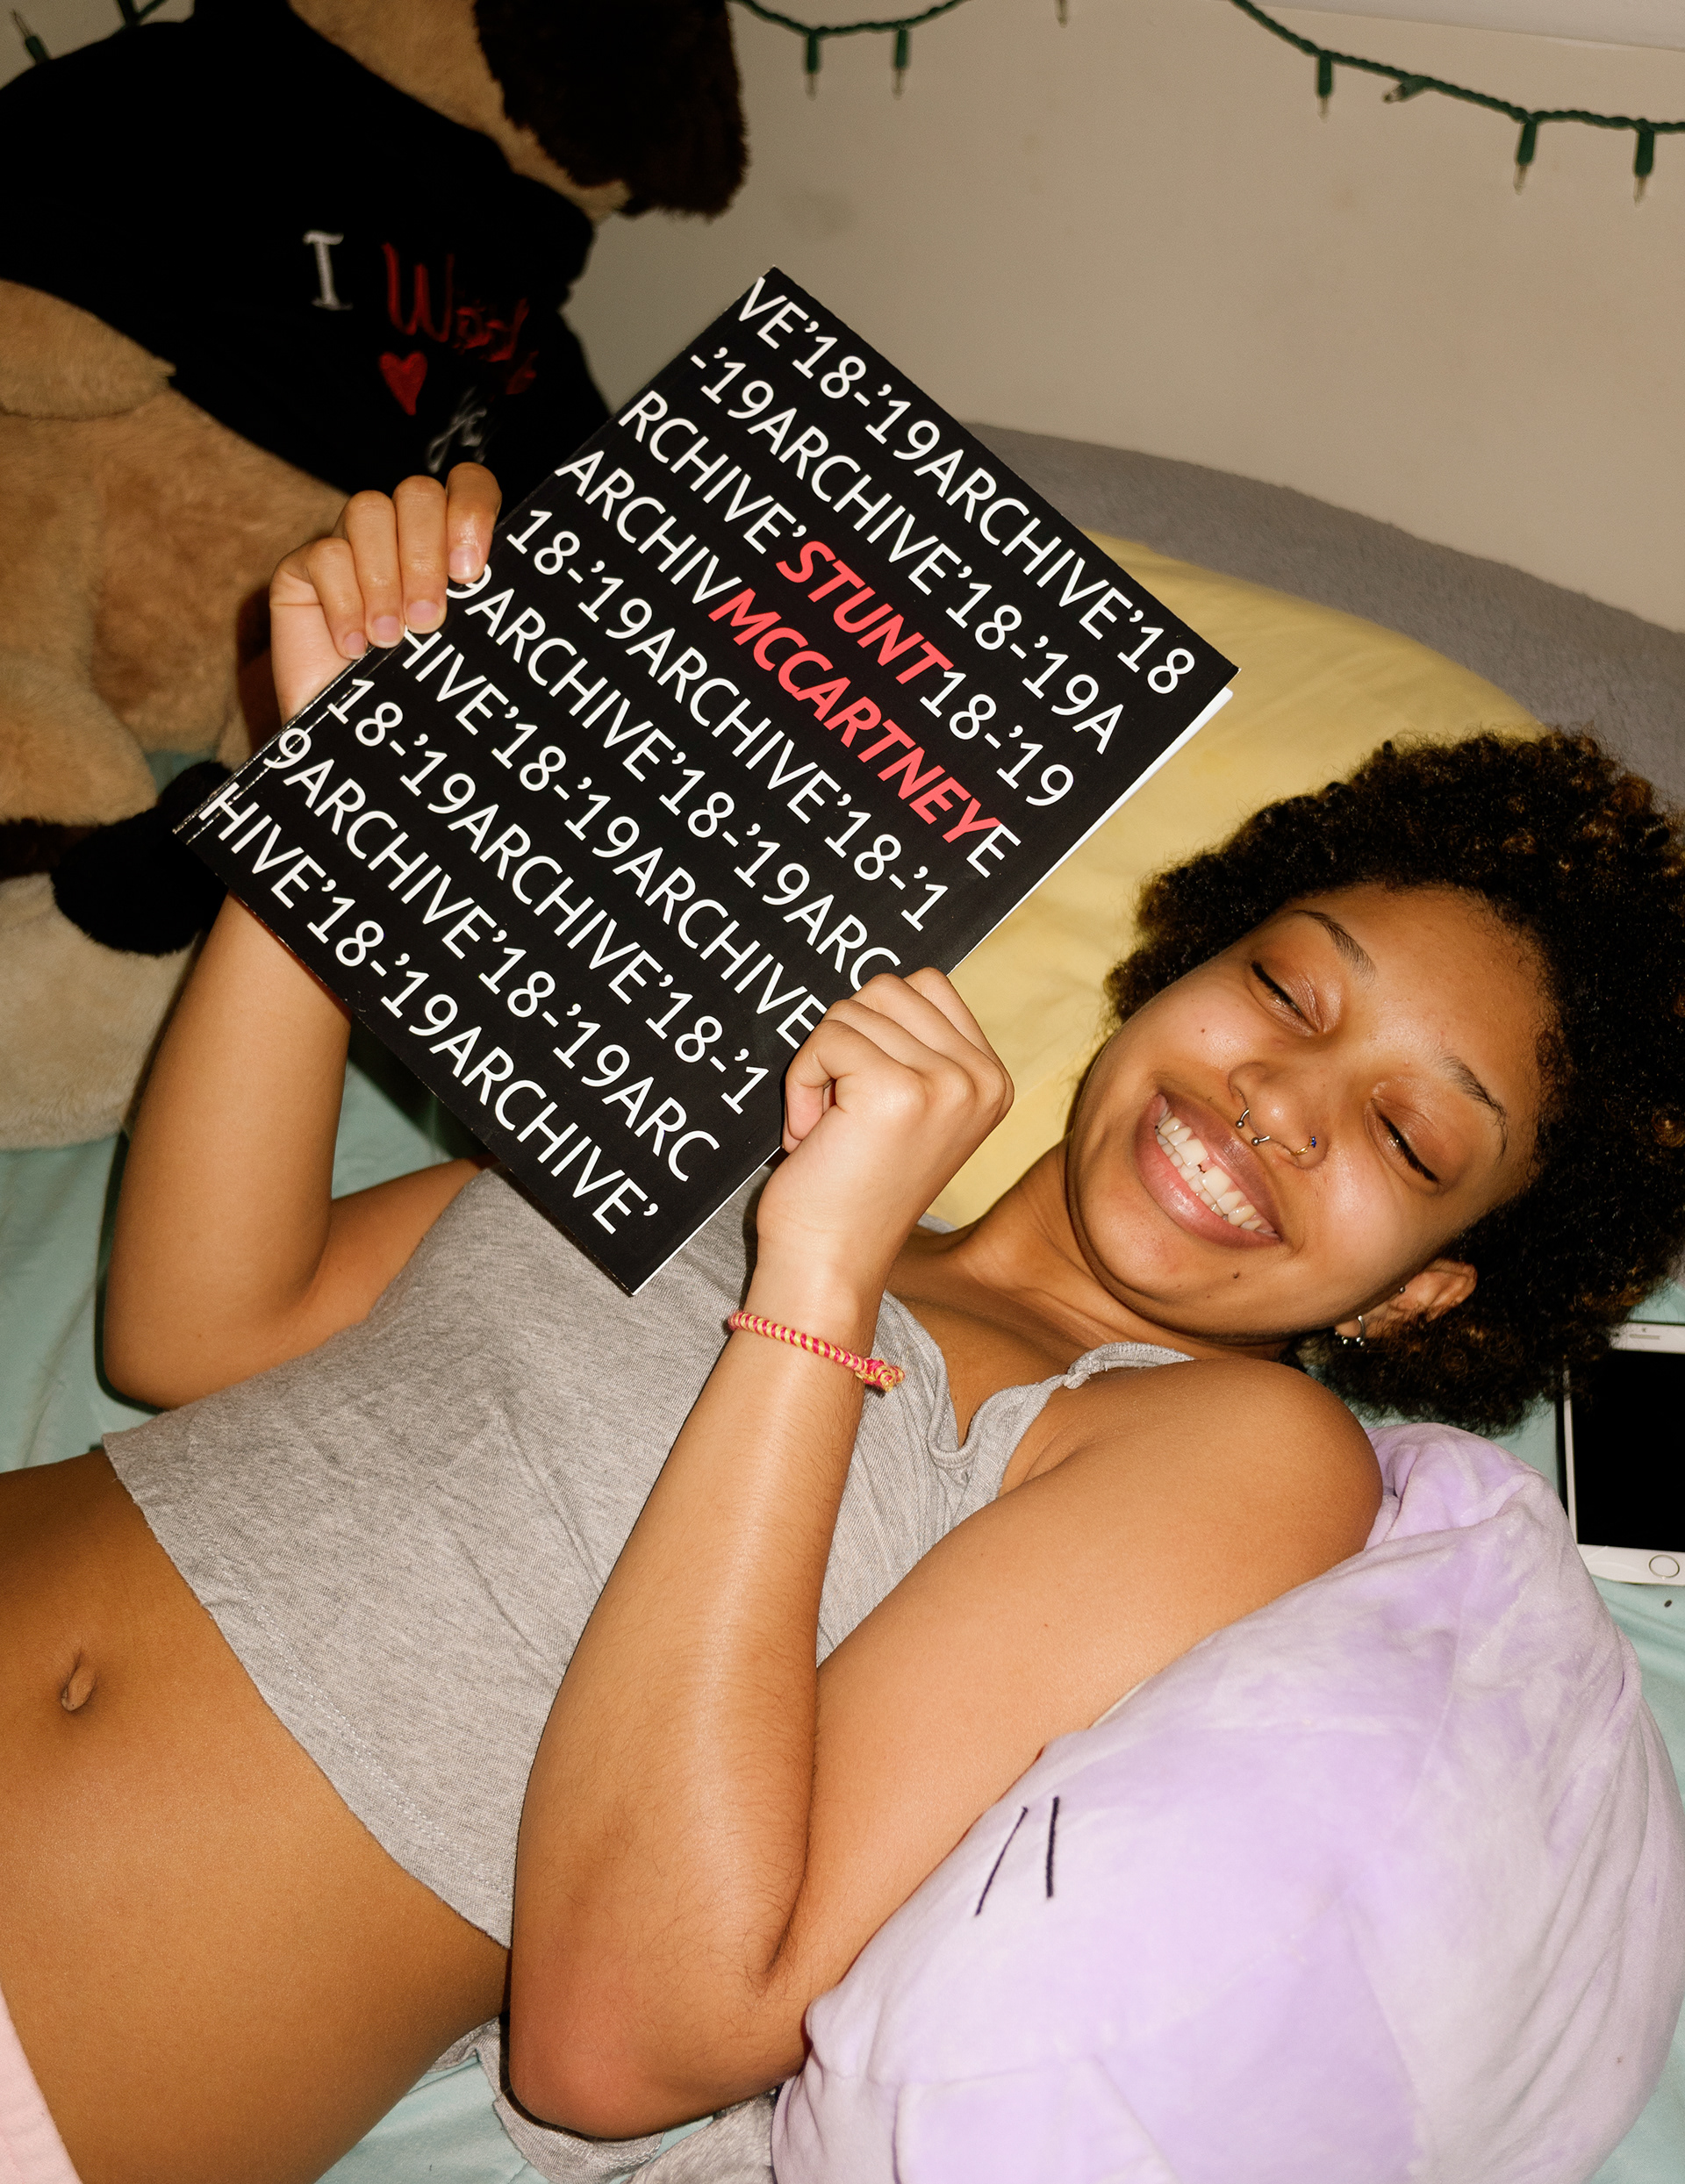 I
VE’18-’19ARCHIVE’18
-’19ARCHIVE’18-’19A
RCHIVE’STUNT18-’19
ARCHIVMCCARTNEYE
18-’19ARCHIVE’18-’1
9ARCHIVE’18-’19ARC
HIVE’18-’19ARCHIVE
18-’19ARCHIVE’18-’1
9ARCHIVE’18-’19ARC
HIVE’18-’19ARCHIVE’